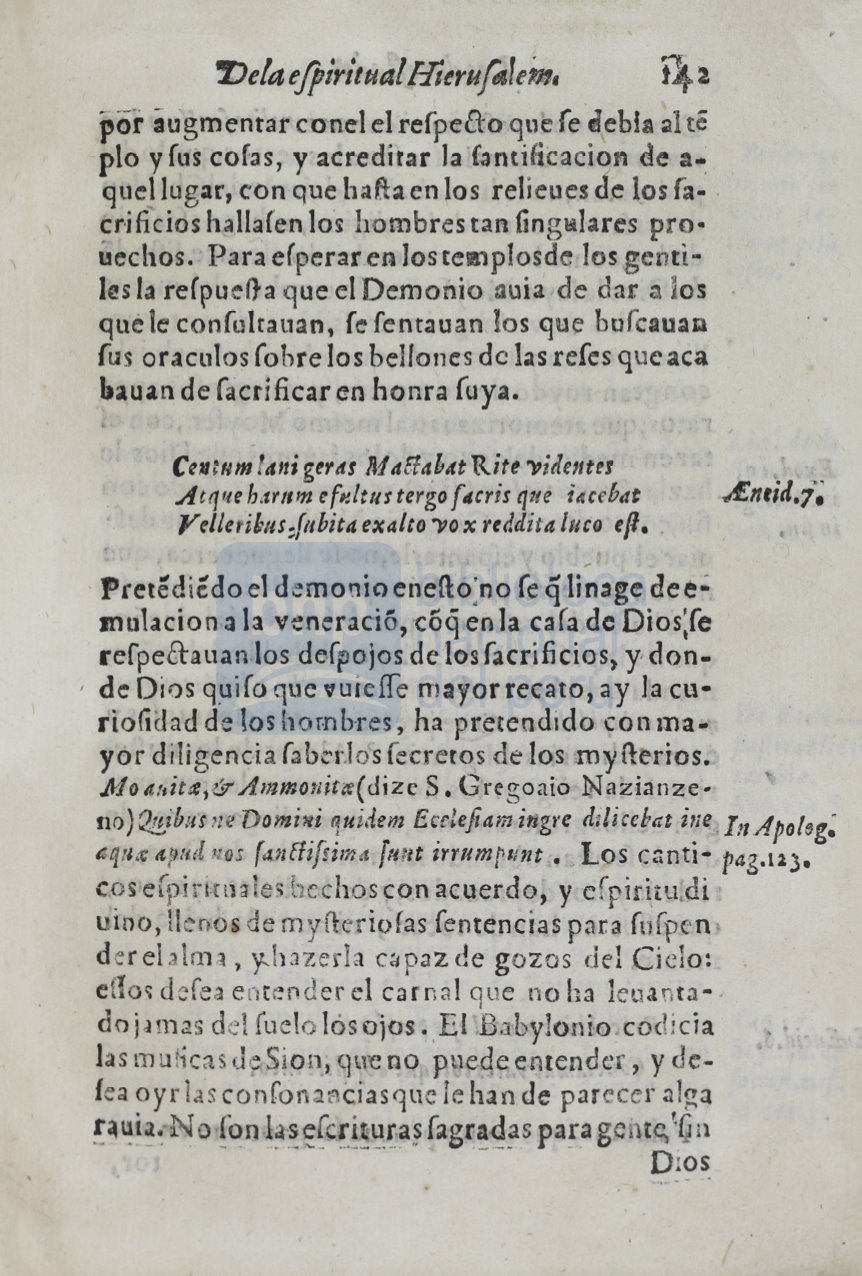 De la eſpiritual Hieruſalem. 142
por augmentar con el el reſpecto que ſe debia al tẽ
plo y ſus coſas, y acreditar la ſantificacion de a-
quel lugar, con que haſta en los relieues de los ſa-
crificios hallaſen los hombres tan ſingulares pro-
uechos. Para eſperar en los templos de los genti-
les la reſpueſta que el Demonio auia de dar a los
que le conſultauan, ſe ſentauan los que buſcauan
ſus oraculos ſobre los bellones de las reſes que aca
bauan de ſacrificar en honra ſuya.
Centum lanigeras Mactabat Rite videntes
Atque harum efultus tergo ſacris que iacebat Æneid.7.
Velleribus, ſubita exalto vox reddita luco eſt.
Pretẽdiẽdo el demonio en eſto no ſe q̃ linage de e-
mulacion a la veneraciõ, cõ q̃ en la caſa de Dios, ſe
reſpectauan los deſpojos de los ſacrificios, y don-
de Dios quiſo que vuieſſe mayor recato, ay la cu-
rioſidad de los hombres, ha pretendido con ma-
yor diligencia ſaber los ſecretos de los myſterios.
Moauitæ, & Ammonitæ (dize S. Gregoaio Nazianze-
no) Quibus ne Domini quidem Eccleſiam ingre dilicebat ine In Apolog.
aquæ apud nos ſanctiſsima ſunt irrumpunt. Los canti- pag.123.
cos eſpirituales hechos con acuerdo, y eſpiritu di
uino, llenos de myſterioſas ſentencias para ſuſpen
der el alma, y hazerla capaz de gozos del Cielo:
eſſos deſea entender el carnal que no ha leuanta-
do jamas del ſuelo los ojos. El Babylonio codicia
las muſicas de Sion, que no puede entender, y de-
ſea oyr las conſonancias que le han de parecer alga
rauia. No ſon las eſcrituras ſagradas para gente, ſin
Dios